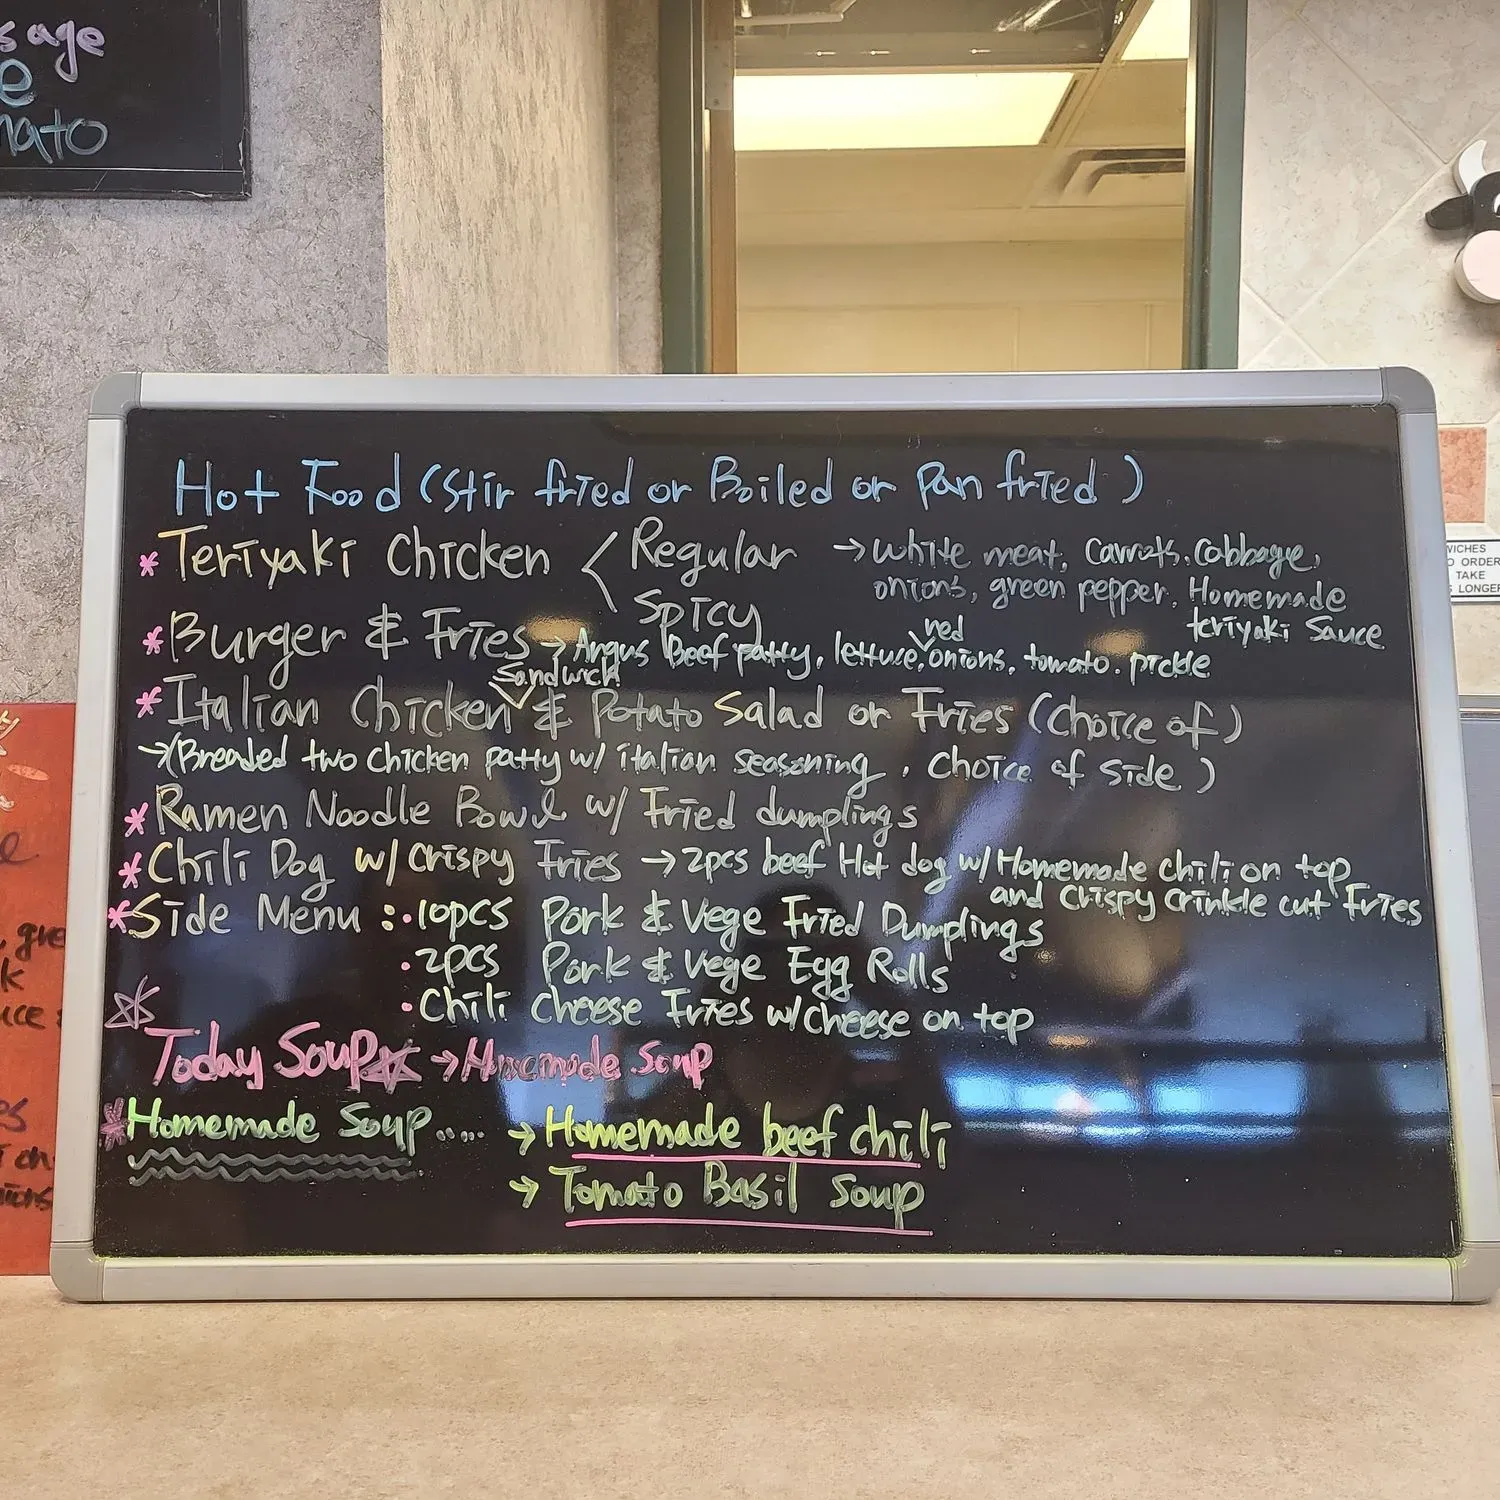 age
e
mato
Hot Food (Stir fried or Boiled or Pan fried)
* Teriyaki Chicken < Regular → white meat, Carrots, Cabbage,
Spicy onions, green pepper, Homemade
teriyaki Sauce
* Burger & Fries → Angus Beef patty, lettuce, red onions, tomato. pickle
* Italian Chicken Sandwich & Potato Salad or Fries (Choice of)
→ (Breaded two Chicken patty w/ italian seasoning, Choice of side)
* Ramen Noodle Bowl w/ Fried dumplings
* Chili Dog w/ Crispy Fries → 2pcs beef Hot dog w/ Homemade chili on top
and Crispy Crinkle cut Fries
* Side Menu : • 10pcs Pork & Vege Fried Dumplings
• 2pcs Pork & Vege Egg Rolls
• Chili Cheese Fries w/ cheese on top
Today Soup → Homemade Soup
* Homemade Soup ..... → Homemade beef chili
→ Tomato Basil Soup
WICHES
O ORDER
TAKE
LONGER